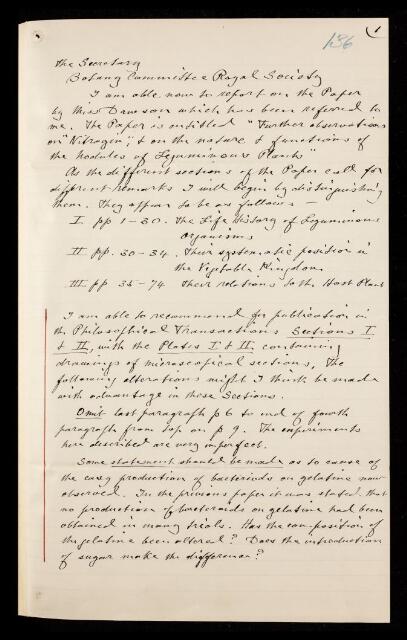 136
1
The Secretary
Botany Committee Royal Society
I am able now to report on the Paper
by Miss Dawson which has been referred to
me. The Paper is entitled "Further observations
on "Nitragin", & on the nature & functions of
the nodules of Leguminous Plants"
As the different sections of the Paper call for
different remarks I will begin by distinguishing
them. They appear to be as follows —
I pp 1-30. The Life History of Leguminous
organisms
II pp. 30-34. Their systematic position in
the Vegetable Kingdom
III pp 35-74 Their relations to the Host Plant
I am able to recommend for publication in
the Philosophical Transactions Sections I
& II, with the Plates I & II, containing
drawings of microscopical sections. The
following alterations might I think be made
with advantage in these sections.
Omit last paragraph p 6 to end of fourth
paragraph from top on p 9. The experiments
here described are very imperfect.
Some statement should be made as to cause of
the easy production of bacteroids on gelatine now
observed. In the previous paper it was stated that
no production of bacteroids on gelatine had been
obtained in many trials. Has the composition of
the gelatine been altered? Does the introduction
of sugar make the difference?